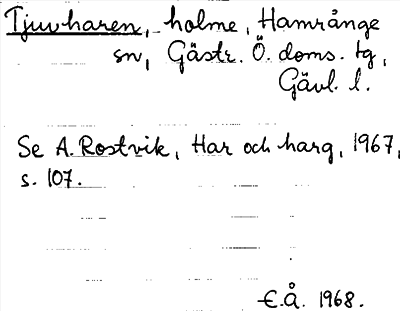 Tjuvharen, holme, Hamrånge
sn, Gästr. Ö. doms. tg,
Gävl. l.
Se A. Rostvik, Har och harg, 1967,
s. 107.
E.Å. 1968.